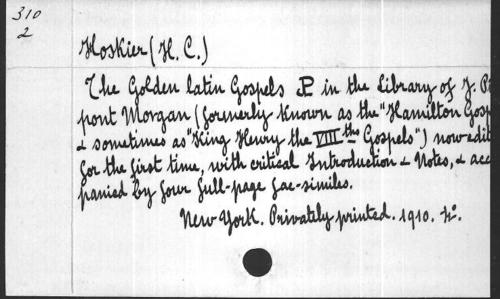 310
2
Hoskier (H. C.)
The Golden latin Gospels JP in the Library of J. P
pont Morgan (formerly known as the "Hamilton Gosp
& sometimes as "King Henry the VIIIths Gospels") now edit
for the first time, with critical Introduction & Notes, & acc
panied by four full-page fac-similes.
New York. Privately printed. 1910. 4o.